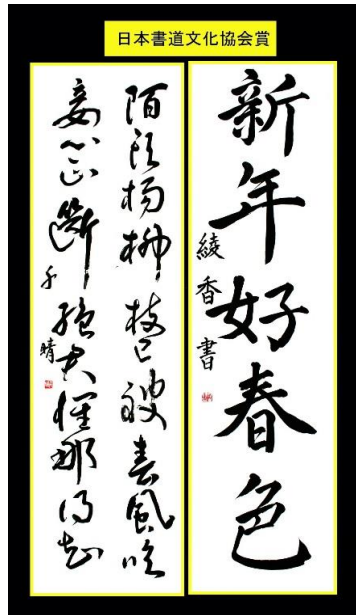 日本書道文化協会賞
新年好春色
綾香書
陌頭楊柳枝已被春風吹
妾心正斷絶君懐那得知
千晴